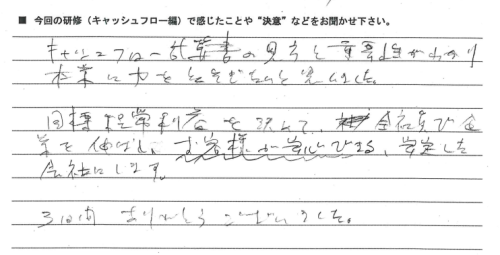 ■ 今回の研修（キャッシュフロー編）で感じたことや“決意”などをお聞かせ下さい。
キャッシュフロー計算書の見方と重要性がわかり
本業に力を と思いました。
目標経常利益を決めて、会社及び企
業を伸ばし、お客様が安心できる、安定した
会社にします。
3日間 ありがとうございました。